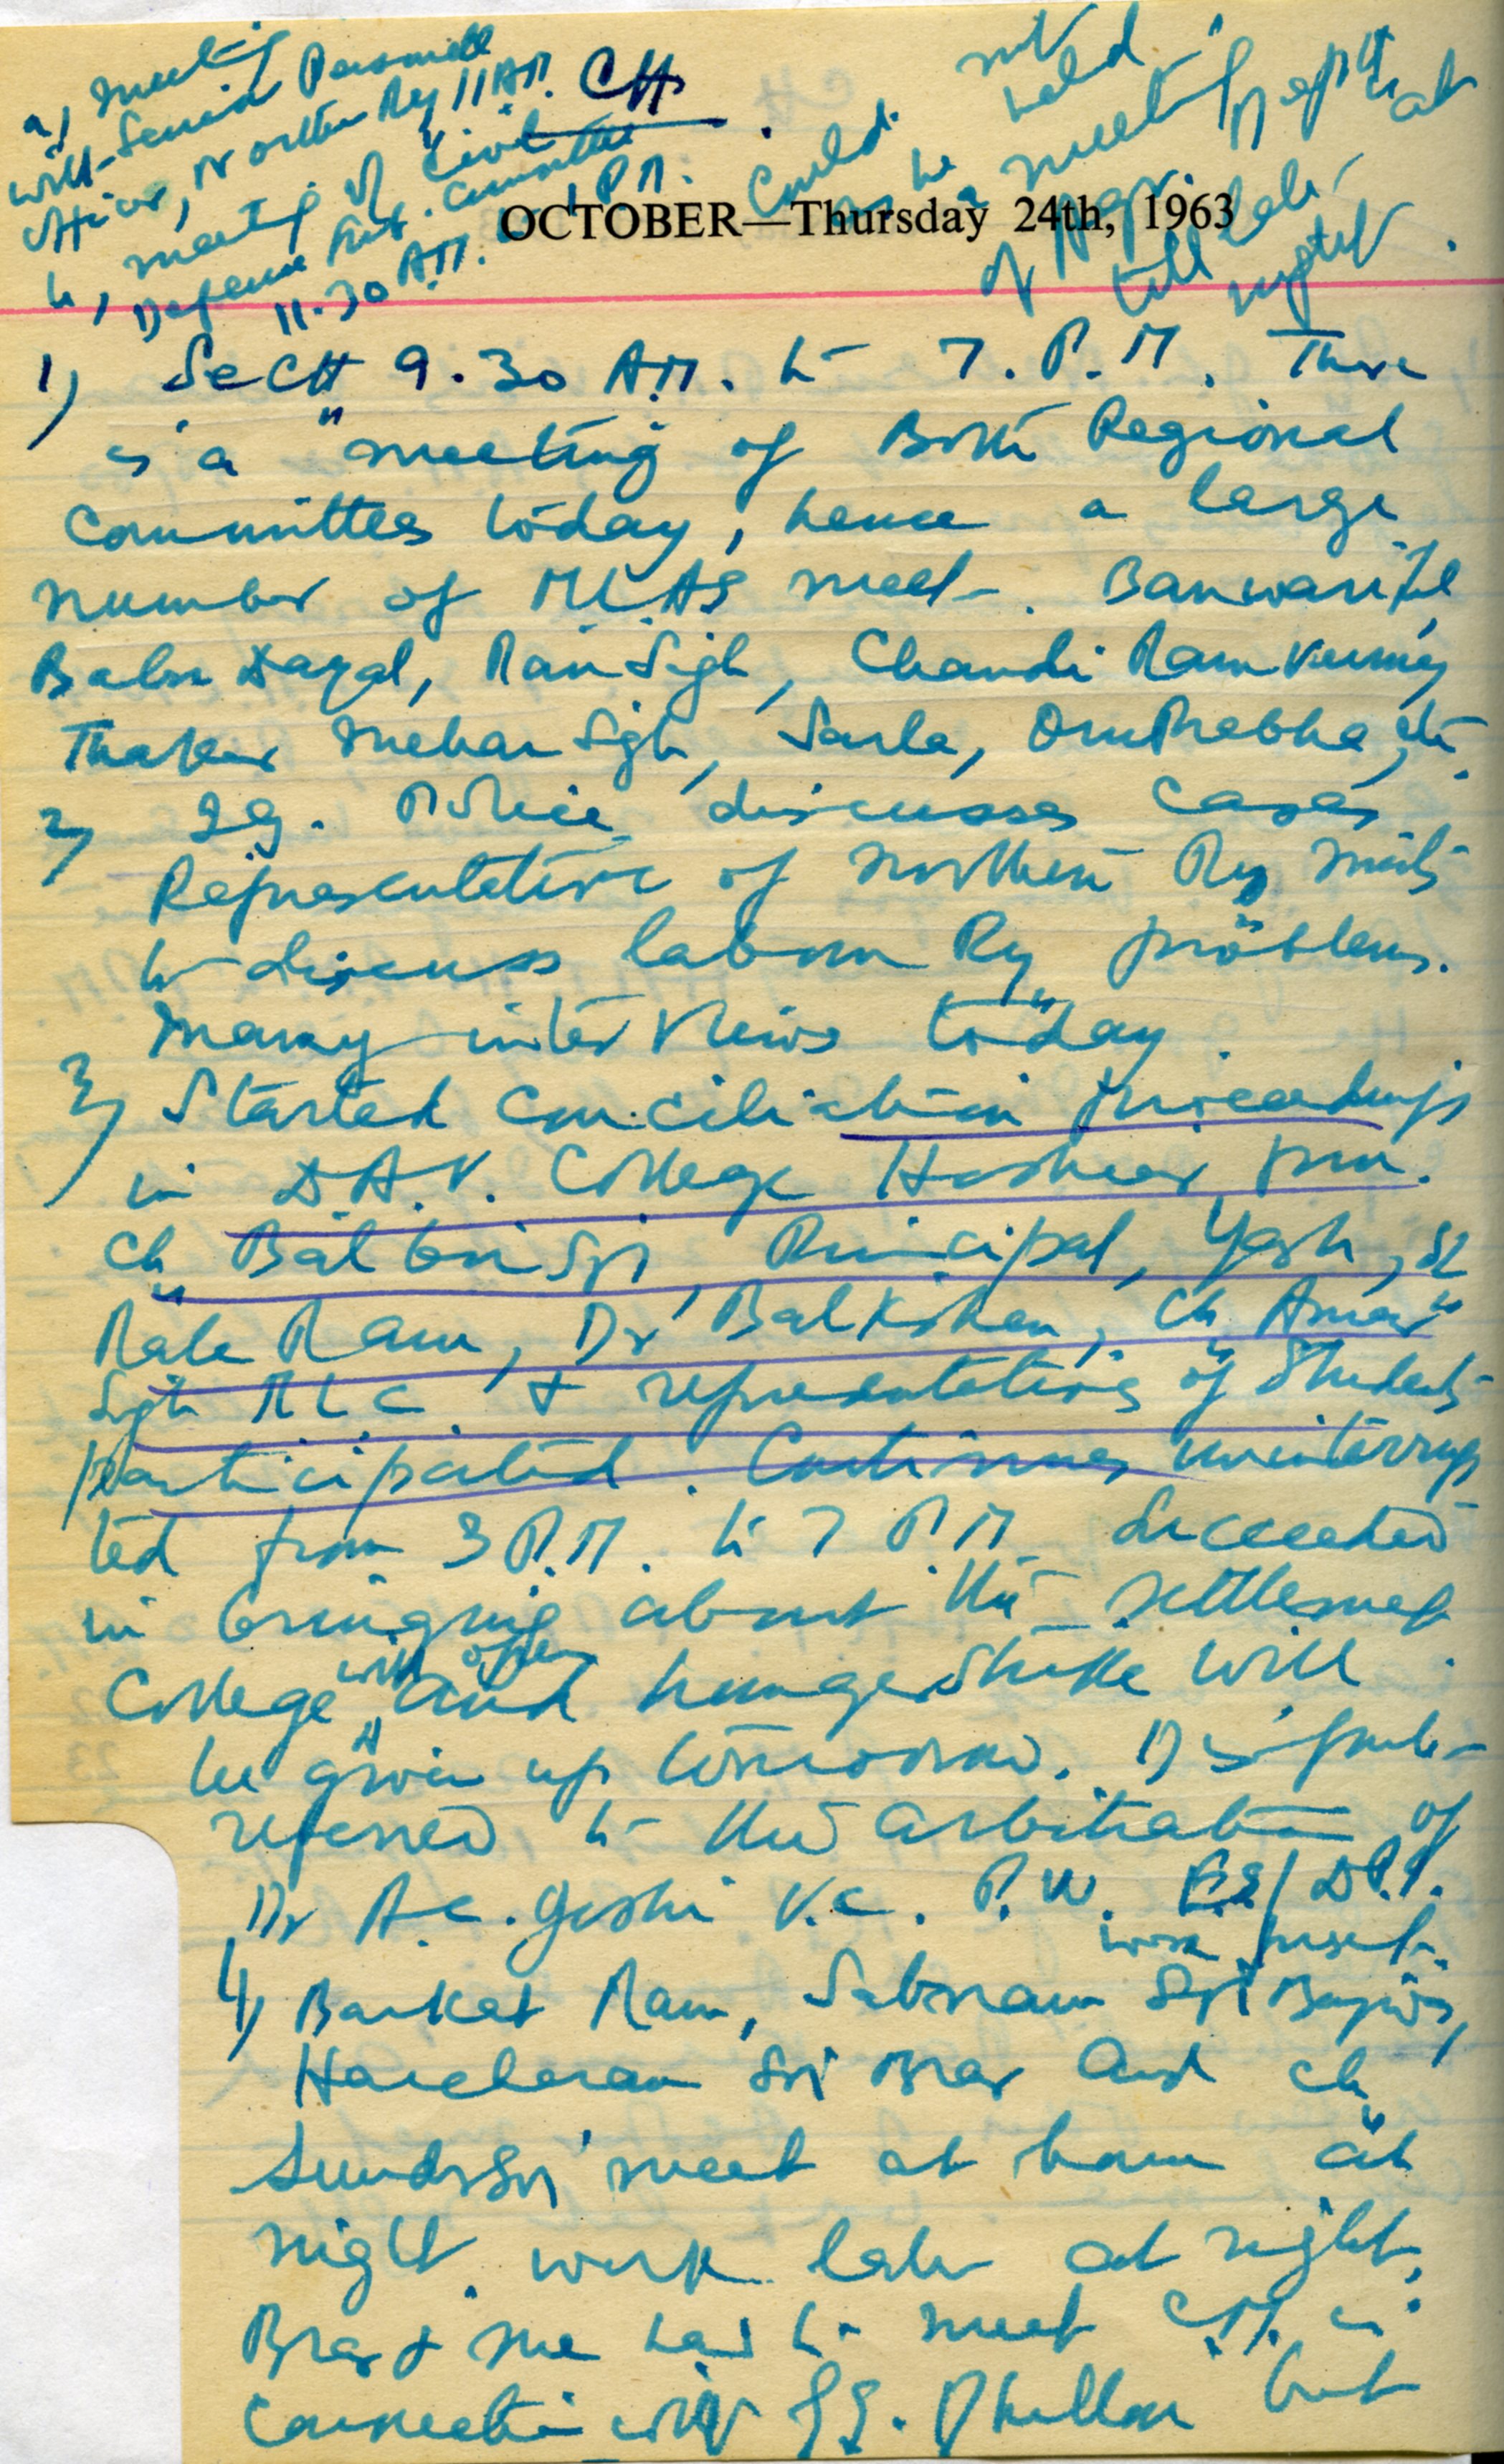 a) Meeting
with Senior Personnel
Officer, Northern Rly 11 A.M.
b) meeting of Civil
Defence Committee
11.30 A.M. to 1 P.M.
CH
OCTOBER—Thursday 24th, 1963
Could not
be held
as he
a meeting
of Deptt
of Agri. at
till late
night.
1) Sectt 9.30 A.M. to 7. P.M. There
is a meeting of Both Regional
Committees today, hence a large
number of MLAs meet. Banwarilal
Babu Dayal, Ran Singh, Chandi Ram Verma,
Thaker Mehar Singh, Sarla, Om Prabha, etc.
2) I.G. Police discusses cases
Representative of Northern Rly meets
to discuss labour Rly problems.
Many interviews today.
3) Started Conciliation proceedings
in D.A.V. College Hoshiar pur.
Ch Balbir Singh, Principal, Yash,
Rala Ram, Dr Balkishan, Ch Amar
Singh MLC & representatives of Students
participated. Continues uninterrup
ted from 3 P.M. to 7 P.M. Succeeded
in bringing about the settlement.
will open
College and hunger strike will
be given up tomorrow. Dispute
referred to the arbitration of
Dr A.C. Joshi V.C. P.U. E.S/D.P.I.
were present.
4) Barkat Ram, Sabnam Singh Bajwa,
Harcharan Singh Brar and Ch
Sunder Singh meet at home at
night. work late at night.
Brar & me had to meet C.M. in
connection with G.S. Dhillon but